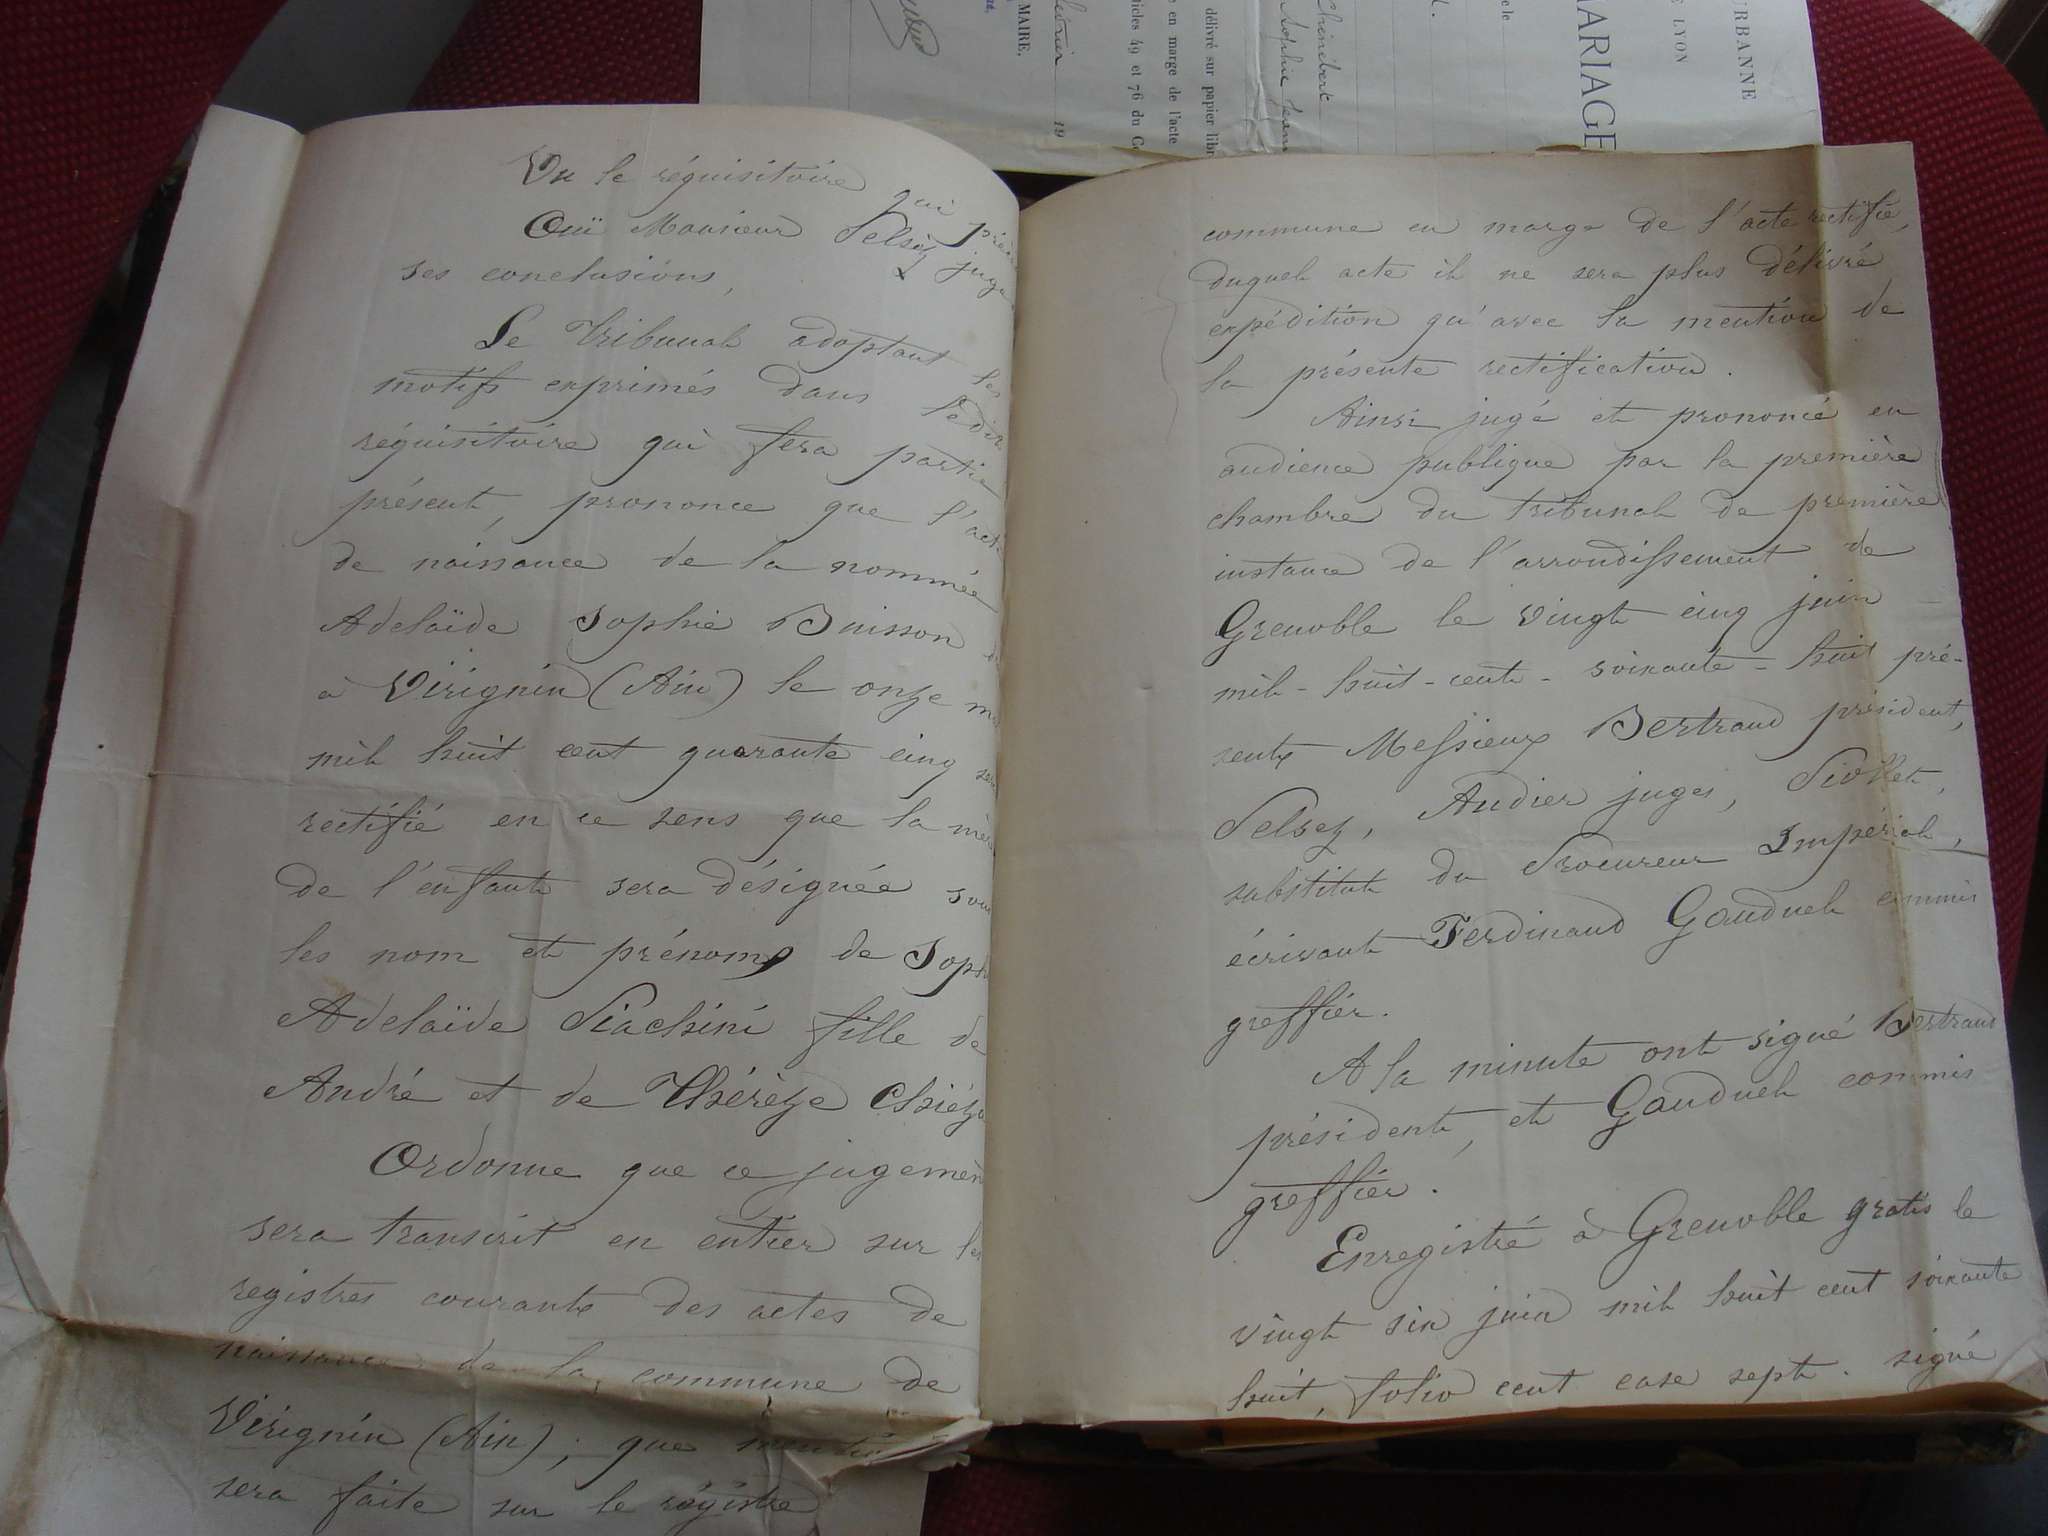 Vu le réquisitoire qui précède
Ouï Monsieur Pelsez juge
ses conclusions,
Le Tribunal adoptant les
motifs exprimés dans ledit
réquisitoire qui fera partie
présent, prononce que l'acte
de naissance de la nommée
Adelaïde Sophie Buisson
à Virignin (Ain) le onze
mil huit cent quarante cinq sera
rectifié en ce sens que la mère
de l'enfant sera désignée sous
les nom et prénoms de Soph
Adelaïde Piachini fille de
André et de Thérèze Chièz
Ordonne que ce jugemen
sera transcrit en entier sur les
registres courants des actes de
naissance de la commune de
Virignin (Ain); que mention
sera faite sur le régistre
commune en marge de l'acte rectifié,
duquel acte il ne sera plus délivré
expédition qu'avec la mention de
la présente rectification.
Ainsi jugé et prononcé en
audience publique par la première
chambre du tribunal de première
instance de l'arrondissement de
Grenoble le vingt cinq juin
mil-huit-cent-soixante-huit pré-
sents Messieurs Bertrand président,
Pelsez, Audier juges,
substitut du Procureur Impérial,
écrivant Ferdinand Gauduel commis
greffier.
A la minute ont signé Bertrand
président, et Gauduel commis
greffier.
Enregistré à Grenoble gratis le
vingt six juin mil huit cent soixante
huit, folio cent case sept. signé
URBANNE
E LYON
MARIAGE
le
Chinibert
Sophie Jean
délivré sur papier libr
e en marge de l'acte
ticles 49 et 76 du Co
février 19
MAIRE,